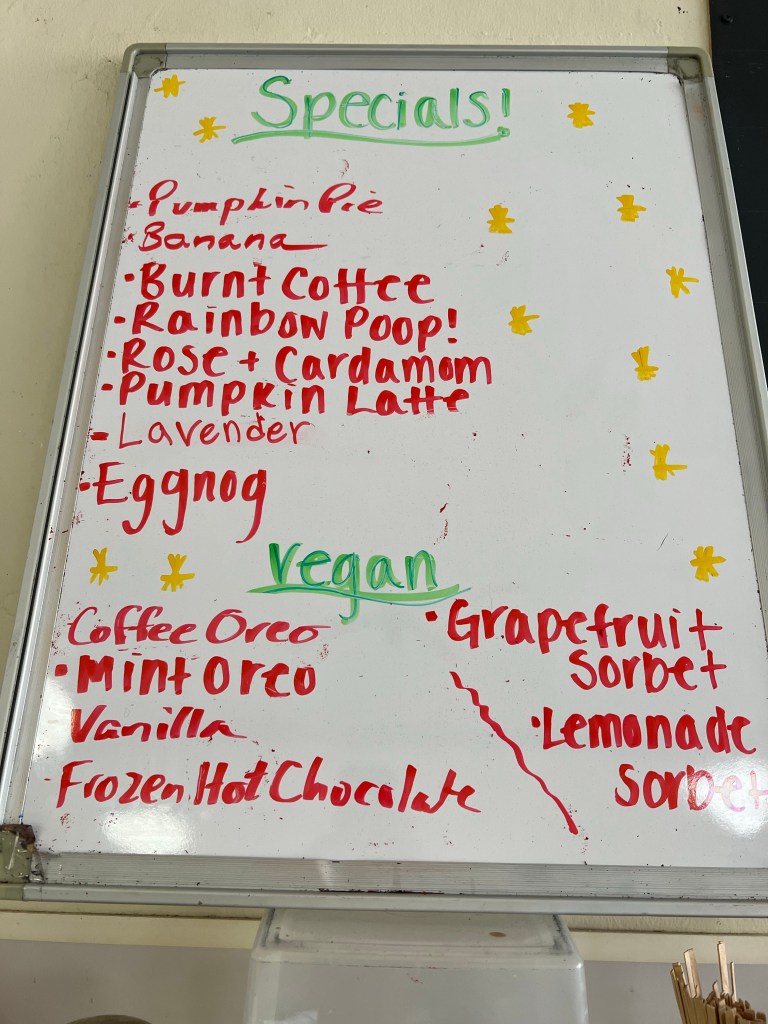 Specials!
- Pumpkin Pie
• Banana
• Burnt Coffee
• Rainbow Poop!
• Rose + Cardamom
• Pumpkin Latte
- Lavender
• Eggnog
vegan
Coffee Oreo
• Mint Oreo
Vanilla
Frozen Hot Chocolate
• Grapefruit
Sorbet
• Lemonade
Sorbet